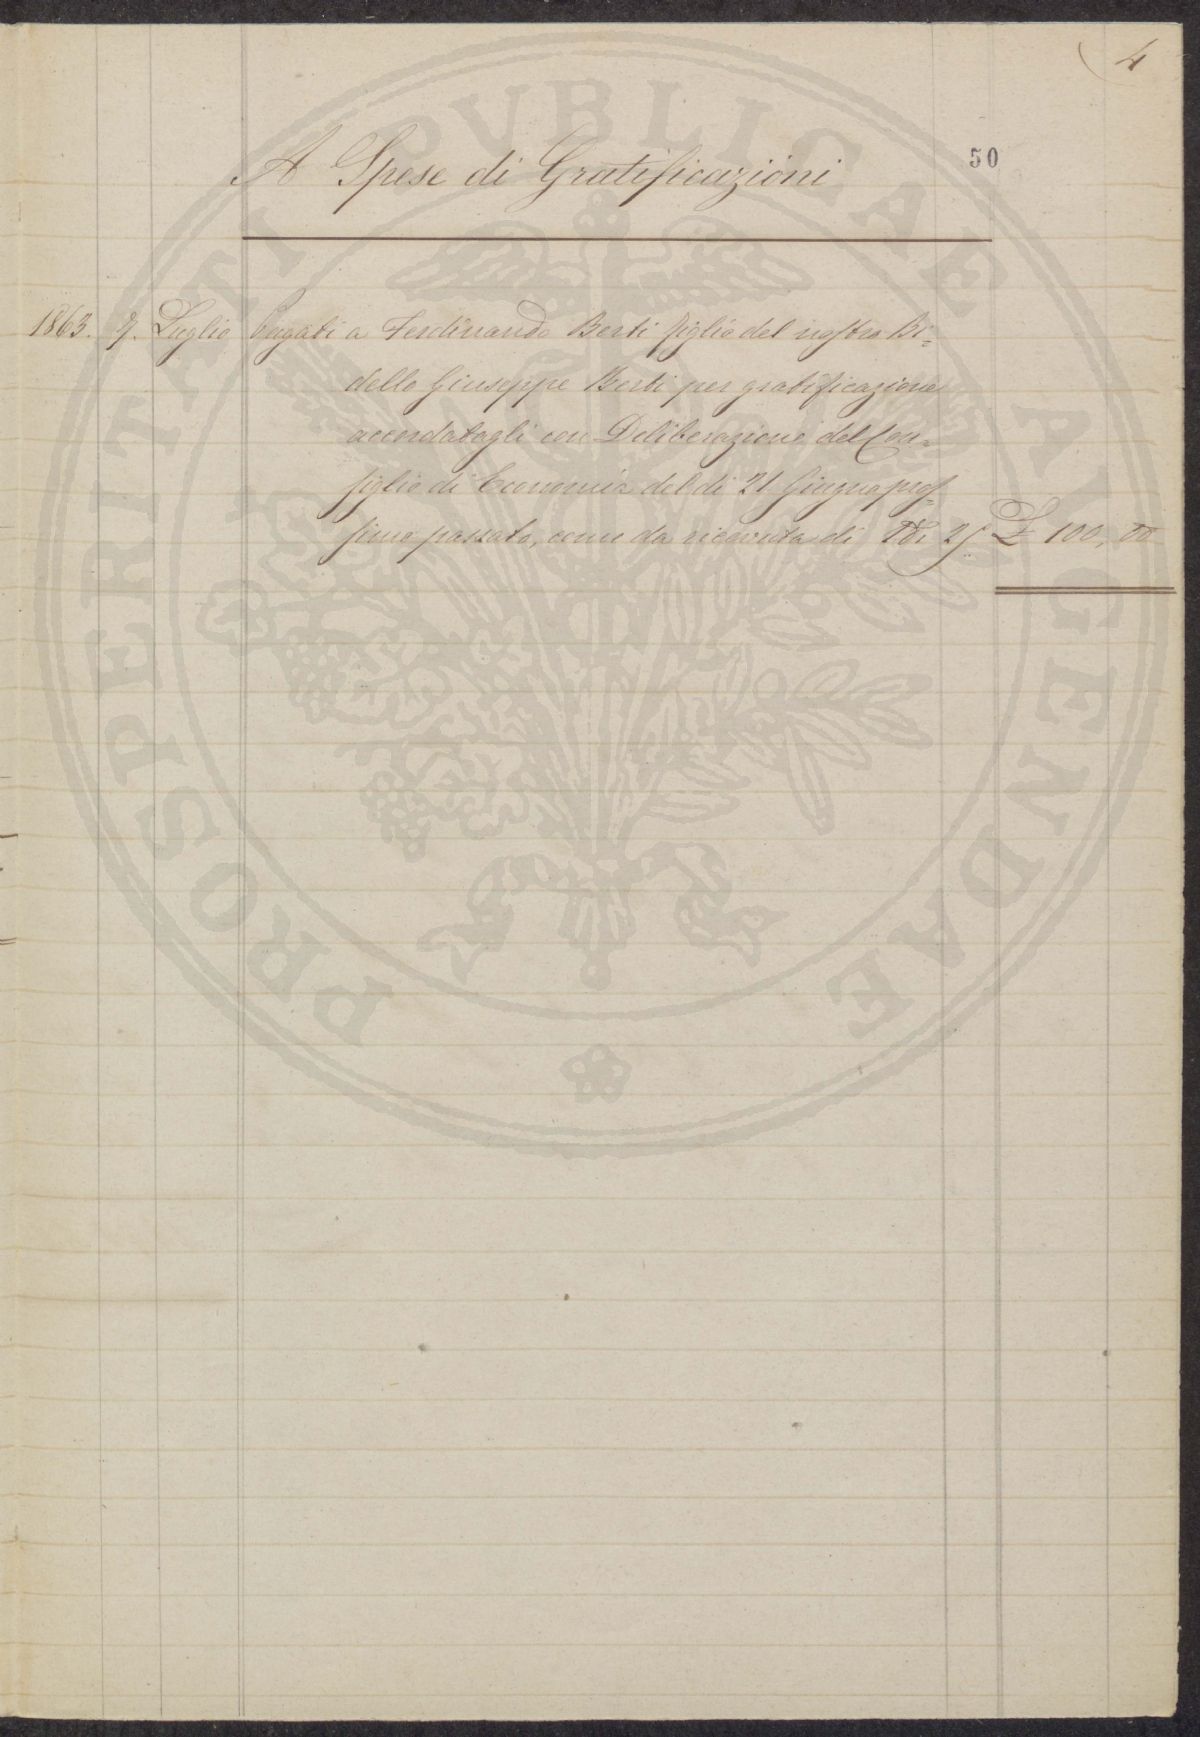 4
50
A Spese di Gratificazioni
1863. 9. Luglio Pagati a Ferdinando Berti figlio del nostro Bi=
dello Giuseppe Berti per gratificazione
accordatagli con Deliberazione del Con=
siglio di Economia del dì 21 Giugno pros=
simo passato, come da ricevuta di £ 100, 00
PROSPERITATI PVBLICAE AVGENDAE